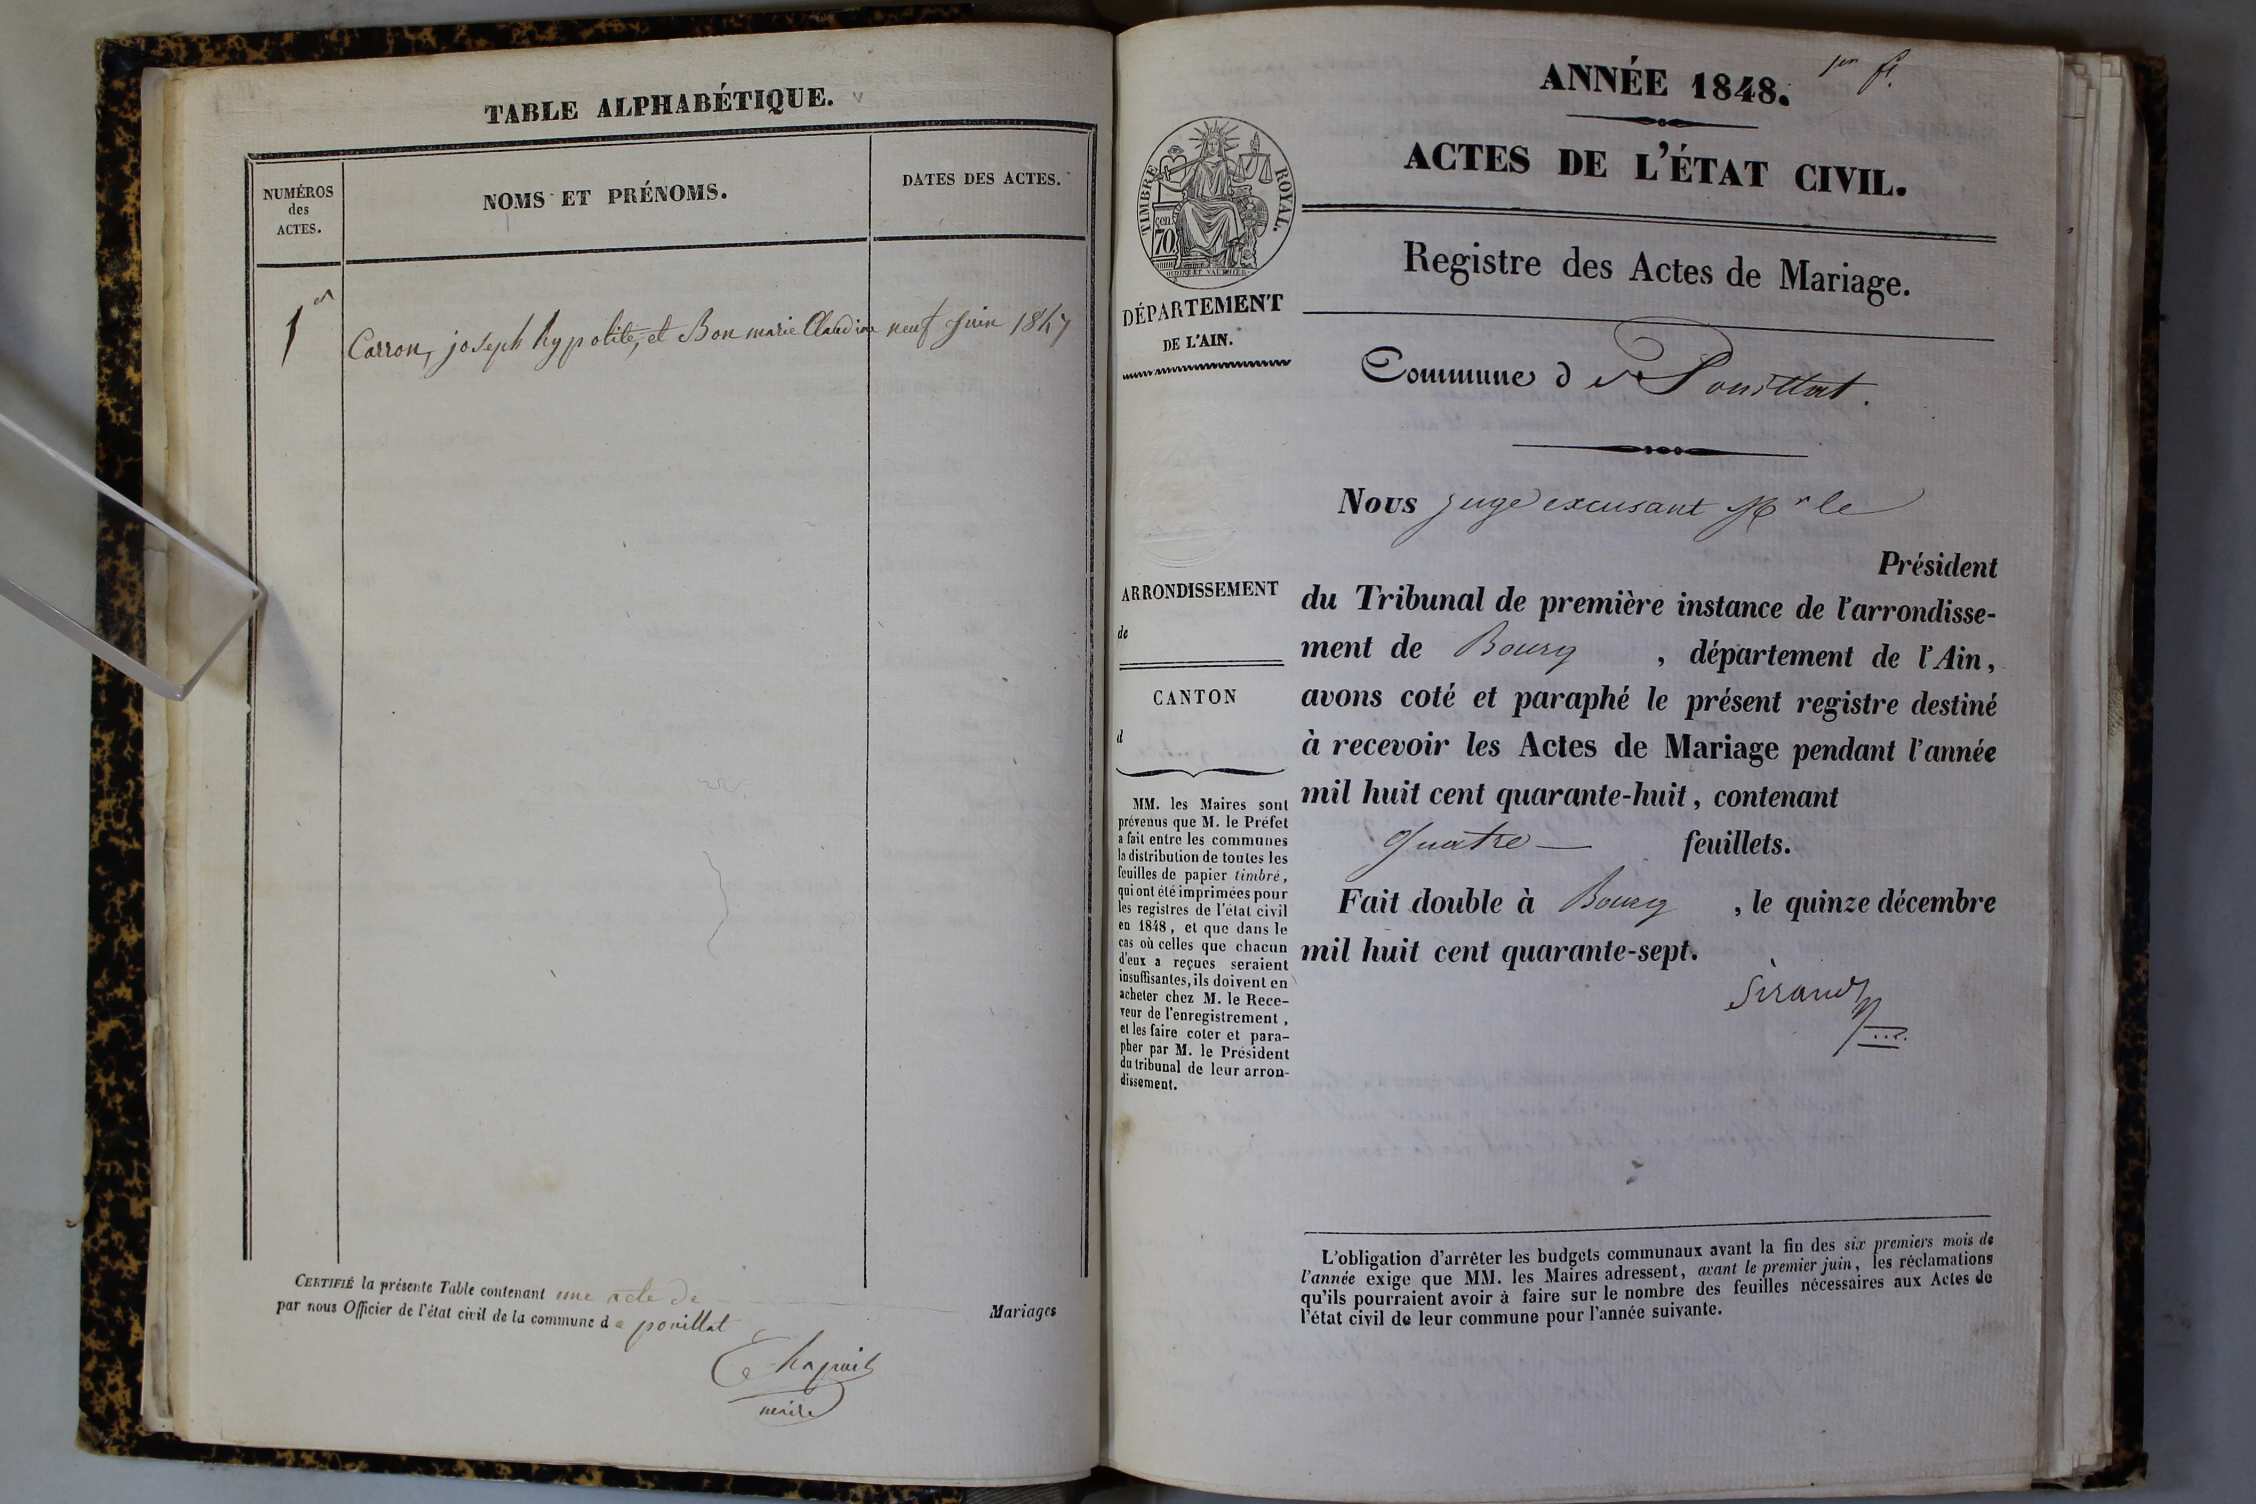 TABLE ALPHABÉTIQUE.
NUMÉROS
des
ACTES.
NOMS ET PRÉNOMS.
DATES DES ACTES.
1er
Carron, joseph hypolite, et Bon marie Claudine neuf Juin 1847
CERTIFIÉ la présente Table contenant une acte de
Mariages
par nous Officier de l'état civil de la commune de pouillat
Chapuis
maire
1er ft.
ANNÉE 1848.
ACTES DE L'ÉTAT CIVIL.
TIMBRE ROYAL.
cen. 70
Registre des Actes de Mariage.
DÉPARTEMENT
DE L'AIN.
Commune de Pouillat.
Nous juge excusant Mr le
Président
du Tribunal de première instance de l'arrondisse-
ment de Bourg, département de l'Ain,
avons coté et paraphé le présent registre destiné
à recevoir les Actes de Mariage pendant l'année
mil huit cent quarante-huit, contenant
quatre feuillets.
Fait double à Bourg, le quinze décembre
mil huit cent quarante-sept.
Sirand
ARRONDISSEMENT
de
CANTON
d
MM. les Maires sont
prévenus que M. le Préfet
a fait entre les communes
la distribution de toutes les
feuilles de papier timbré,
qui ont été imprimées pour
les registres de l'état civil
en 1848, et que dans le
cas où celles que chacun
d'eux a reçues seraient
insuffisantes, ils doivent en
acheter chez M. le Rece-
veur de l'enregistrement,
et les faire coter et para-
pher par M. le Président
du tribunal de leur arron-
dissement.
L'obligation d'arrêter les budgets communaux avant la fin des six premiers mois de
l'année exige que MM. les Maires adressent, avant le premier juin, les réclamations
qu'ils pourraient avoir à faire sur le nombre des feuilles nécessaires aux Actes de
l'état civil de leur commune pour l'année suivante.